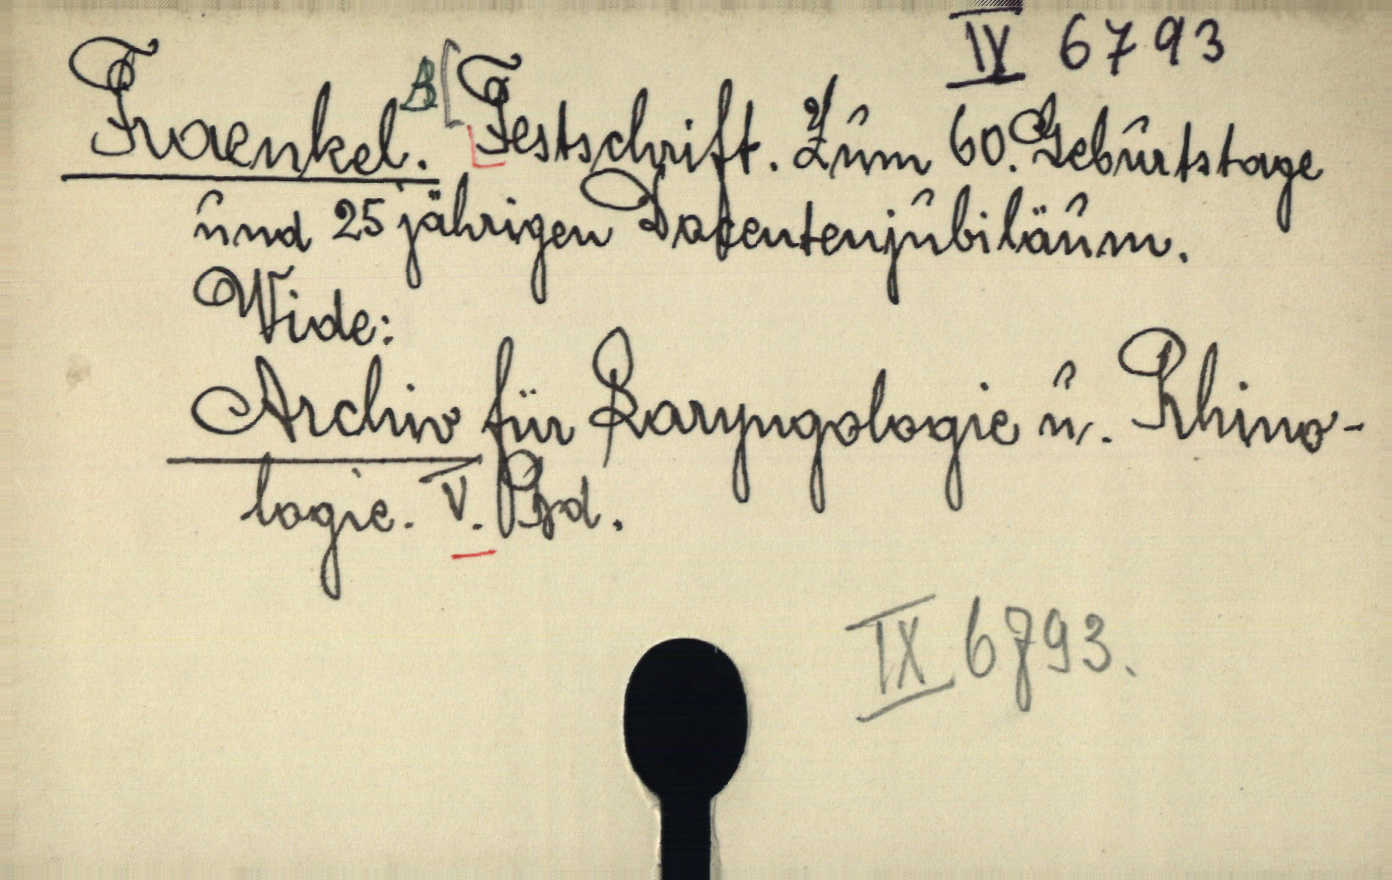 IX 6793
Fraenkel. B [Festschrift. Zum 60. Geburtstage
und 25 jährigen Docentenjubiläum.
Vide:
Archiv für Laryngologie u. Rhino-
logie. V. Bd.
IX 6793.